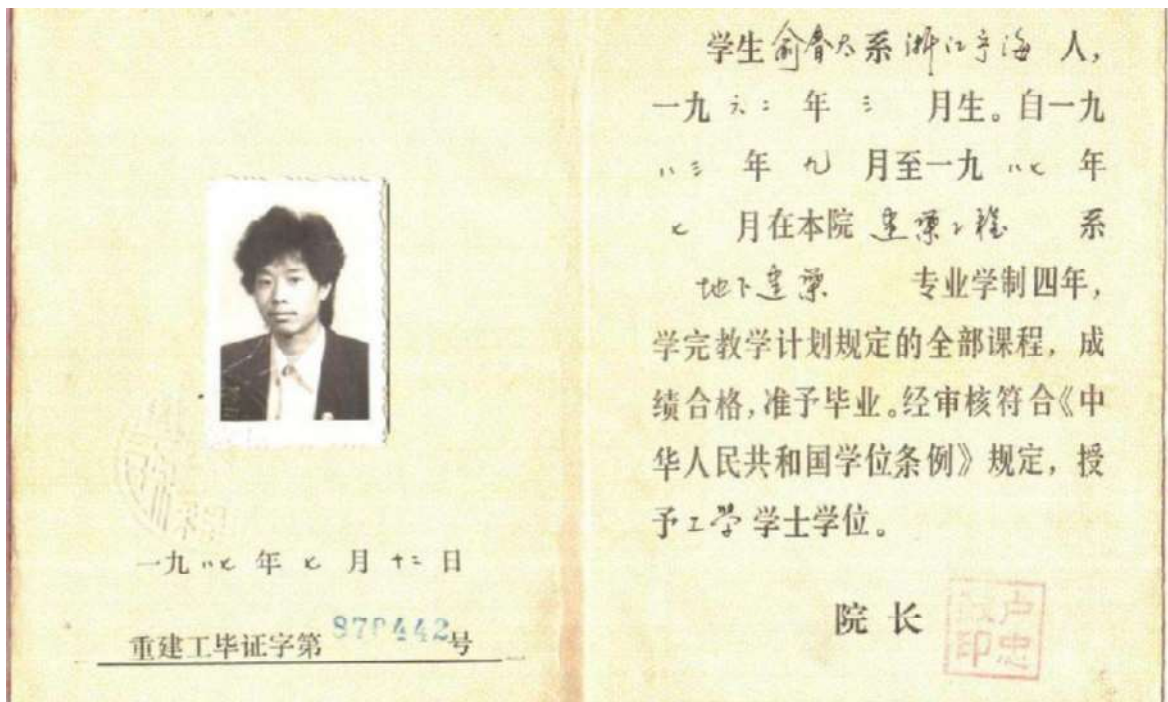 一九八七年七月十二日
重建工毕证字第 870442号
学生俞春太系浙江宁海 人,
一九六二 年 三 月生。自一九
八三 年 九 月至一九八七 年
七 月在本院 建筑工程 系
地下建筑 专业学制四年,
学完教学计划规定的全部课程,成
绩合格,准予毕业。经审核符合《中
华人民共和国学位条例》规定,授
予工学学士学位。
院长
卢忠
政印